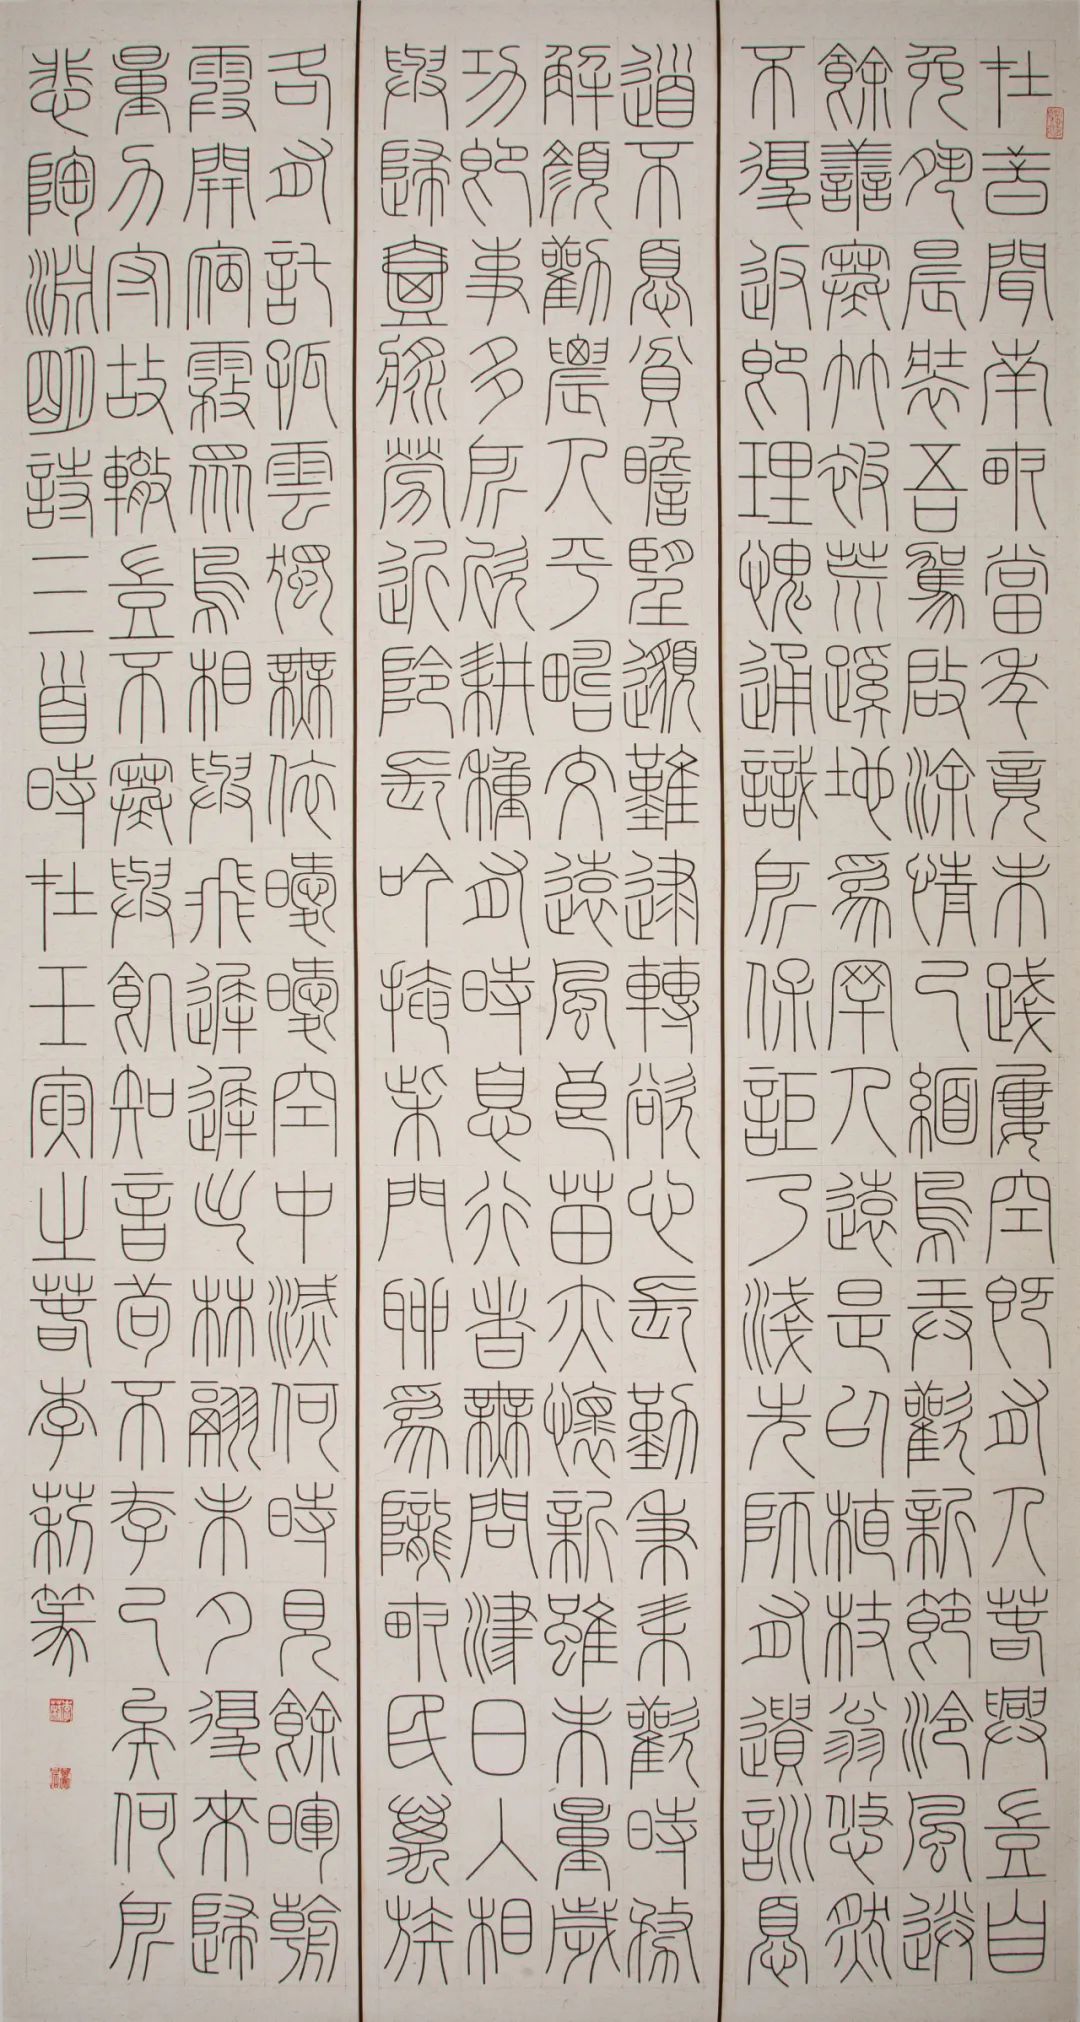 在昔聞南畝當年竟未踐屢空既有人春興豈自
免夙晨裝吾駕啟塗情已緬鳥弄歡新節泠風送
餘善寒竹被荒蹊地為罕人遠是以植杖翁悠然
不復返即理愧通識所保詎乃淺先師有遺訓憂
道不憂貧瞻望邈難逮轉欲心長勤秉耒歡時務
解顏勸農人平疇交遠風良苗亦懷新雖未量歲
功即事多所欣耕種有時息行者無問津日入相
與歸壺漿勞近鄰長吟掩柴門聊為隴畝民萬族
各有託孤雲獨無依曖曖空中滅何時見餘暉朝
霞開宿霧眾鳥相與飛遲遲出林翮未夕復來歸
量力守故轍豈不寒與飢知音苟不存已矣何所
悲陶淵明詩三首時在壬寅之春李莉篆